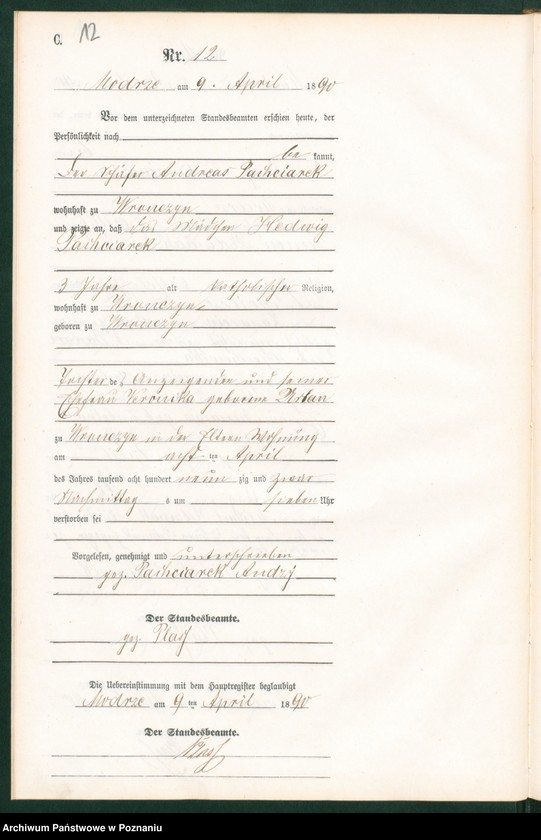 C. 12
Nr. 12
Modrze am 9. April 1890
Vor dem unterzeichneten Standesbeamten erschien heute, der
Persönlichkeit nach
be kannt,
der Schäfer Andreas Pachciarek
wohnhaft zu Wronczyn
und zeigte an, daß das Mädchen Hedwig
Pachciarek
3 Jahre alt katholischer Religion,
wohnhaft zu Wronczyn
geboren zu Wronczyn
Tochter des Anzeigenden und seiner
Ehefrau Veronika geborene
zu Wronczyn in der Eltern Wohnung
am acht ten April
des Jahres tausend acht hundert neun zig und zwar
Nachmittag s um sieben Uhr
verstorben sei
Vorgelesen, genehmigt und unterschrieben
gez. Pachciarek Andrzj
Der Standesbeamte.
gez.
Die Uebereinstimmung mit dem Hauptregister beglaubigt
Modrze am 9 ten April 1890
Der Standesbeamte.
Archiwum Państwowe w Poznaniu